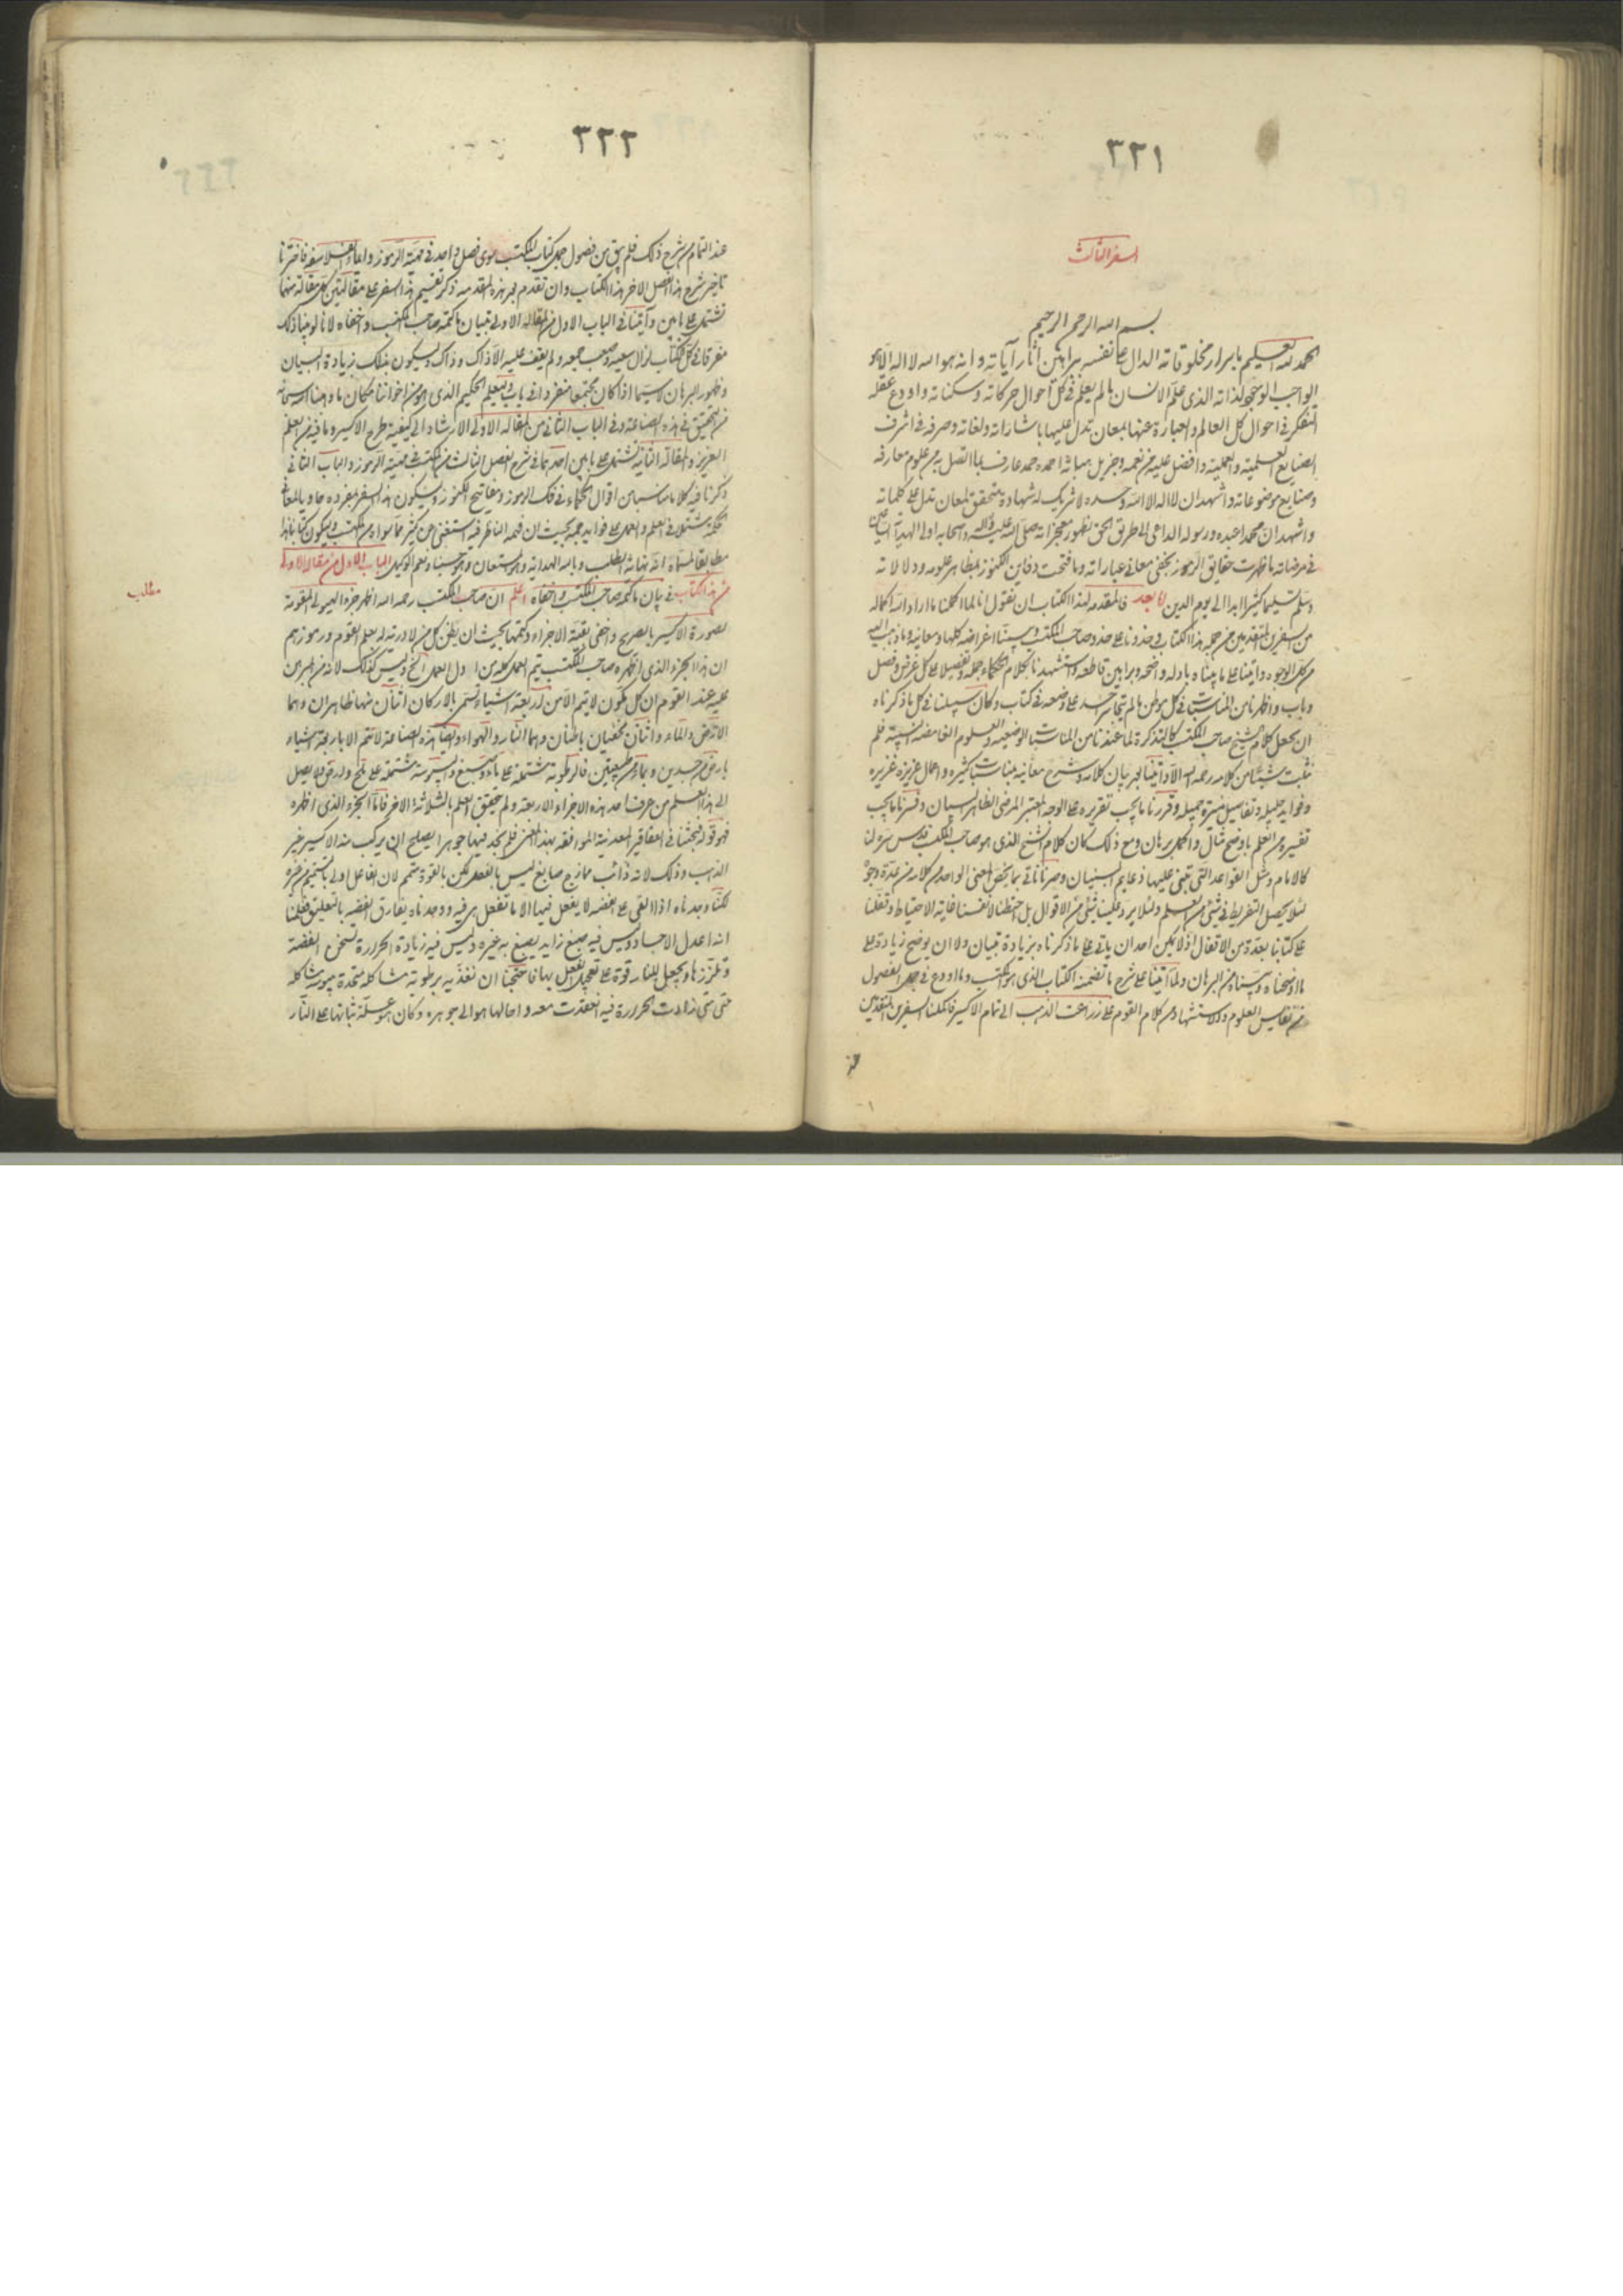 ٣٢١
السفر الثالث
بسم الله الرحمن الرحيم
الحمد لله العليم باسرار مخلوقاته الدال على نفسه ببراهين اثار آياته وانه هو الله لا اله الا هو
الواجب الوجود لذاته الذى علم الانسان ما لم يعلم فى كل احوال حركاته وسكناته واودع عقله
التفكر فى احوال كل العالم والعبارة عنها بمعان تدل عليها باشاراته ولغاته وصرفه فى اشرف
الصنايع العلمية والعملية وافضل عليه من نعمه وجزيل هباته احمده حمد عارف بما اتصل به من علوم معارفه
وصنايع موضوعاته واشهد ان لا اله الا الله وحده لا شريك له شهادة متحقق لمعان تدل على كلماته
واشهد ان محمدا عبده ورسوله الداعى الى طريق الحق بظهور معجزاته صلى الله عليه وآله وصحابه اولى الهداية
فى مرضاته ما ظهرت حقايق الرموز بخفى معانى عباراته وما فتحت دفاين الكنوز بمظاهر علومه ودلالاته
وسلم تسليما كثيرا ابدا الى يوم الدين اما بعد فالمقدمة لهذا الكتاب ان نقول انا لما اكملنا ما اراد الله اكماله
من السفرين المتقدمين من جملة هذا الكتاب وحذونا على حذو صاحب المكتسب وبينا اغراضه كلها ومعانيه وما ذهب اليه
من كل الوجوه واتينا على ما بيناه بادلة واضحة وبراهين قاطعة واستشهدنا بكلام الحكماء جملة وتفصيلا على كل غرض وفصل
وباب واظهرنا من المناسبات فى كل موطن ما لم يتجاسر احد على وضعه فى كتاب وكان سبيلنا فى كل ما ذكرناه
ان نجعل كلام الشيخ صاحب المكتسب كالتذكرة لما عندنا من المناسبات الوضعية والعلوم الغامضة النسبية فلم
نثبت شيئا من كلامه رحمه الله الا واتينا بعد بيان كلامه وشرح معانيه بمناسبات كثيرة واعمال عزيزة غزيرة
وفوايد جليلة وتفاصيل منيرة جميلة وقررنا ما يجب تقريره على الوجه المعتبر المرضى الظاهر البيان وفسرنا ما يجب
تفسيره من العلم باوضح مثال واكمل برهان ومع ذلك كان كلام الشيخ الذى هو صاحب المكتسب قدس سره لنا
كالامام ومثل القواعد التى تبنى عليها دعايم البنيان وصرنا نأتى بما يخص المعنى الواحد من كلامه من عدة وجوه
لئلا يحصل التفريط فى شئ من العلم ولئلا يرد علينا شئ من الاقوال بل احتطنا لانفسنا غاية الاحتياط وقفلنا
على كتابنا بعدة من الاقفال اذ لا يمكن احد ان ياتى على ما ذكرناه بزيادة تبيان ولا ان يوضح زيادة على
ما اوضحناه وبيناه من البرهان ولما اتينا على شرح ما تضمنه الكتاب الذى هو المكتسب وما اودع فى جمل الفصول
من نفايس العلوم والاستشهاد من كلام القوم على زراعة الذهب الى تمام الاكسير فاكملنا السفرين المتقدمين
عند
٣٢٢
عند التمام من شرح ذلك فلم يبق من فصول جمل كتاب المكتسب سوى فصل واحد فى تعمية الرموز واعماء الفلاسفة فاخترنا
تاخير شرح هذا الفصل الاخر هذا الكتاب وان نقدم بعد هذه المقدمة ذكر تقسيم هذا السفر على مقالتين كل مقالة منهما
تشتمل على بابين وآتينا فى الباب الاول من المقالة الاولى بتبيان ما كتمه صاحب المكتسب واخفاه لانا لو بينا ذلك
مفرقا فى كل الكتاب لزال سعيه وصعب جمعه ولم يقف عليه الا ذاك وذاك وليكون بذلك زيادة البيان
وظهور البرهان لا سيما اذا كان مجتمعا منفردا فى باب وليعلم الحكيم الذى هو من اخواننا مكان ما وهبنا الله سبحانه
من التحقيق فى هذه الصناعة وفى الباب الثانى من المقالة الاولى الارشاد الى كيفية طرح الاكسير وما فيه من العلم
العزيز والمقالة الثانية تشتمل على بابين احدهما فى شرح الفصل الثالث من المكتسب فى تعمية الرموز والباب الثانى
ذكرنا فيه كلاما مناسبا من اقوال الحكماء فى فك الرموز ومفاتيح الكنوز وليكون هذا السفر بمفرده حاويا لمعانى
الحكمة مشتملا فى العلم والعمل على فوايد جمة بحيث ان فهمه الناظر فيه استغنى عن كثير مما سواه من الكتب وليكون كتابنا هذا
مطابقا لمسماه انه نهاية الطلب وبالله الهداية وهو المستعان وهو حسبنا ونعم الوكيل الباب الاول من مقالة الاولى
من هذا الكتاب فى بيان ما كتمه صاحب المكتسب واخفاه اعلم ان صاحب المكتسب رحمه الله اظهر جزء الهيولى المقومة
لصورة الاكسير بالصريح واخفى بقية الاجزاء وكتمها بحيث ان يظن كل من لا درية له بعلم القوم ورموزهم
ان هذا الجزء الذى اظهره صاحب المكتسب يتم العمل كله من اول العمل الخ وليس كذلك لانه من المبرهن
عليه عند القوم ان كل مكون لا يتم الا من اربعة اشياء تسمى بالاركان اثنان منها ظاهران وهما
الارض والماء واثنان مخفيان باطنان وهما النار والهواء ولهذا هذه الصناعة لا تتم الا باربعة اشياء
بارض من جسدين وبماء من طبيعتين فالرطوبة مشتملة على ماء وصبغ واليبوسة مشتملة على ملح وارض ولا يصل
الى هذا العلم من عرف احد هذه الاجزاء الاربعة ولم يحقق العلم بالثلاثة الاخر فاما الجزء الذى اظهره
فهو قوله فبحثنا فى العقاقير المعدنية الموافقة بهذا المعنى فلم نجد فيها جوهرا يصلح ان يركب منه الاكسير غير
الذهب وذلك لانه ذائب ممازج صابغ ليس بالفعل لكن بالقوة متمم لان الفاعل اولى بالتتميم من غيره
لكنا وجدناه اذا القى على الفضة لا يفعل فيها الا ما تفعل هى فيه ووجدناه يفارق الفضة بالتعليق فقلنا
انه اعدل الاجساد وليس فيه صبغ زايد يصبغ به غيره وليس فيه زيادة الحرارة تسخن الفضة
وتلززها ويجعل للنار قوة على تعجيل الفعل بها فاحتجنا ان نغذيه برطوبة مشاكلة متحدة بيبوسة شاكله
حتى متى زادت الحرارة فيه انعقدت معه واحالها هو الى جوهره وكان هو سلة ثباتها على النار
مطلب